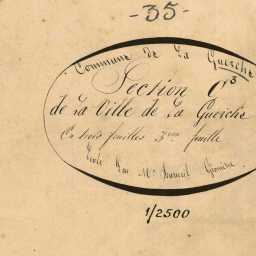 -35-
Commune de La Guerche
Section C³
de La Ville de La Guerche
En trois feuilles 3ème feuille
Levée Par Mr
1/2500